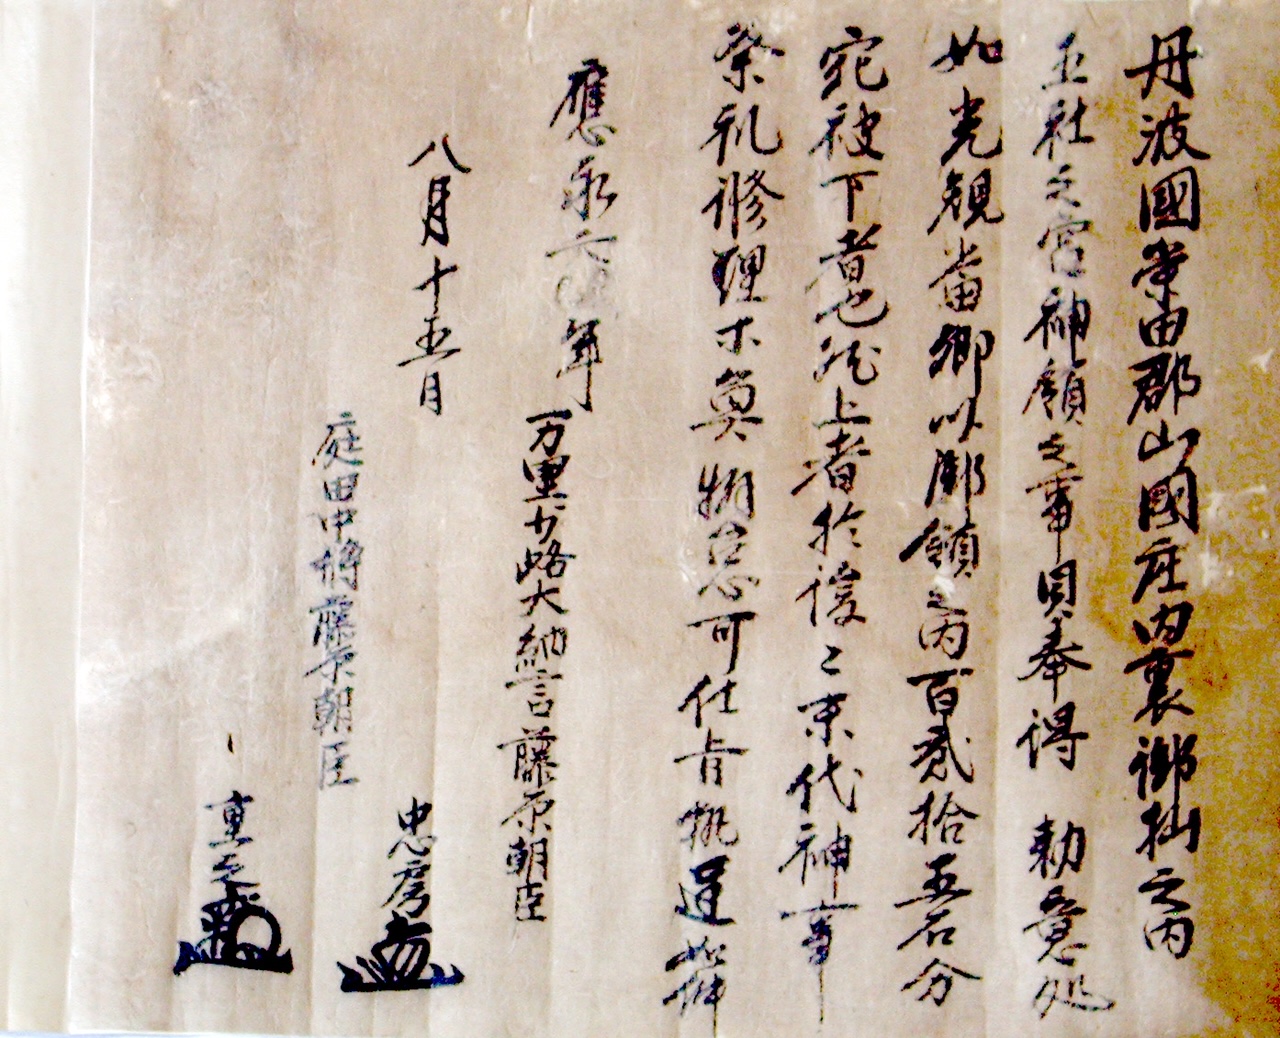 丹波國桒田郡山國庄内裏御杣之内
五社之宮神領之事具奉得 勅意処
如光親當郷以御領之内百貳拾五石分
宛被下者也然上者於後々末代神事
祭礼修理等莫懈怠可仕旨執達如件
應永六 年
八月十五日
万里小路大納言藤原朝臣
忠房
庭田中将藤原朝臣
重之